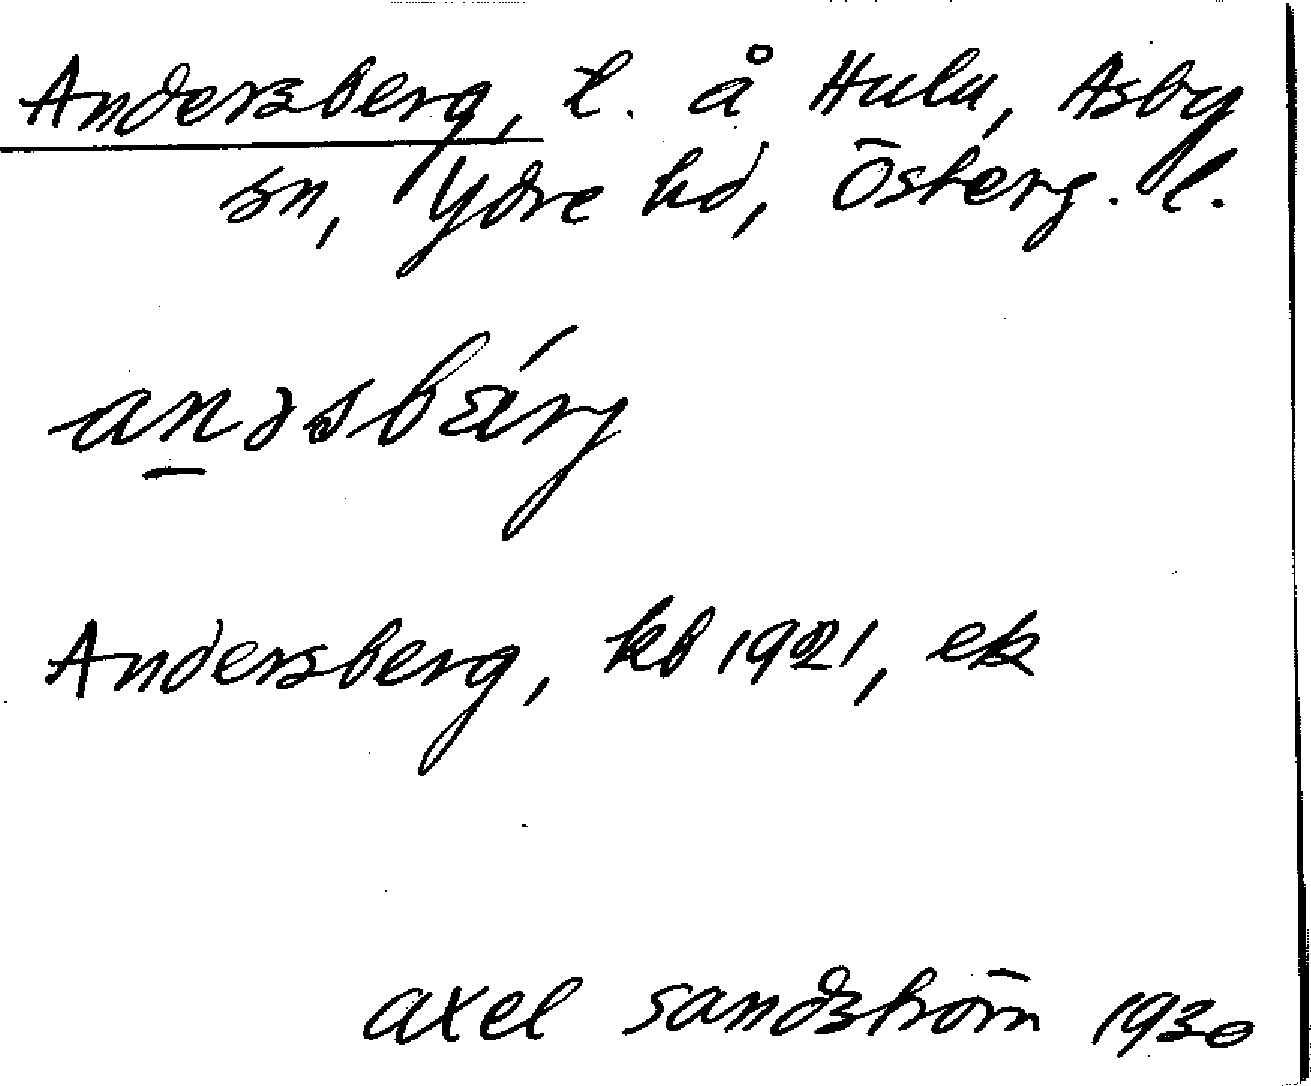 Andersberg, l. å Hulu, Asby
sn, Ydre hd, Österg. l.
anəsbärj
Andersberg, kb 1921, ek
axel sandström 1930